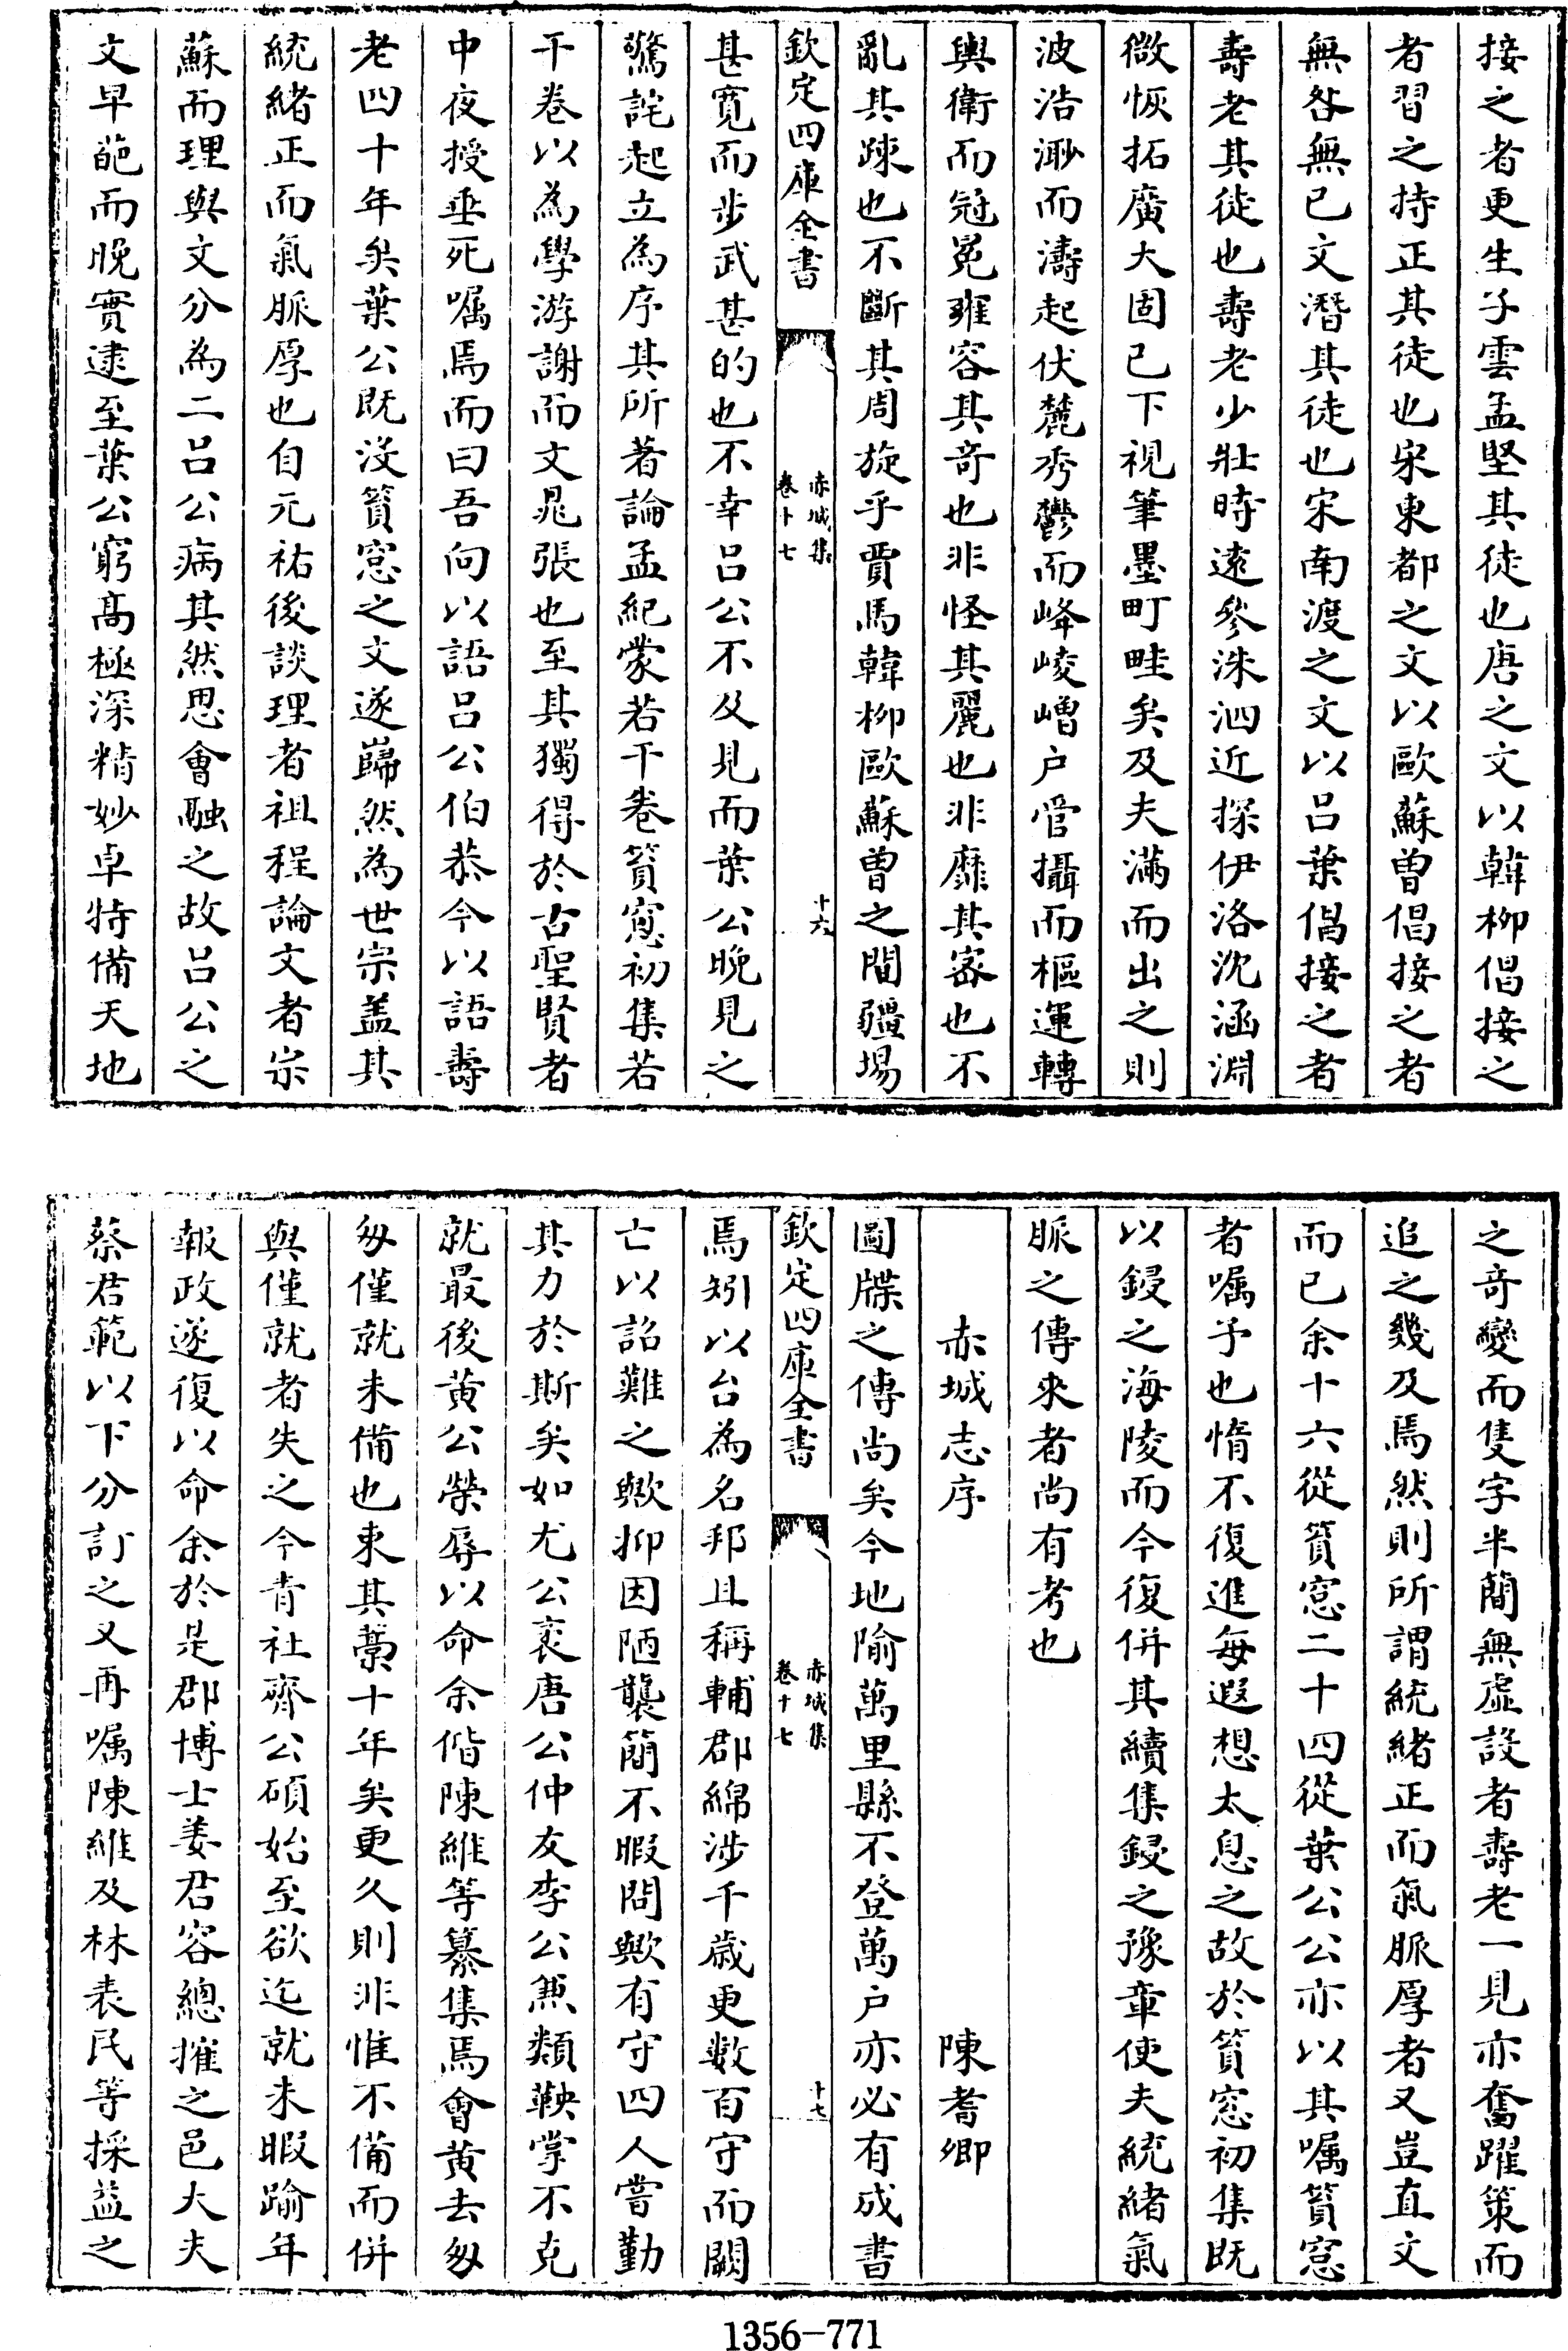 接之者更生子雲孟堅其徒也唐之文以韓柳倡接之
者習之持正其徒也宋東都之文以歐蘇曾倡接之者
無咎無已文潛其徒也宋南渡之文以呂葉倡接之者
壽老其徒也壽老少壯時遠參洙泗近探伊洛沈涵淵
微恢拓廣大固已下視筆墨町畦矣及夫滿而出之則
波浩渺而濤起伏麓秀鬱而峰崚嶒户管攝而樞運轉
輿衛而冠冕雍容其奇也非怪其麗也非靡其密也不
亂其疎也不斷其周旋乎賈馬韓柳歐蘇曾之間疆場
欽定四庫全書
赤城集
卷十七
十六
甚寛而步武甚的也不幸呂公不及見而葉公晚見之
驚詫起立為序其所著論孟紀蒙若干卷篔窓初集若
干卷以為學游謝而文晁張也至其獨得於古聖賢者
中夜授垂死嘱焉而曰吾向以語呂公伯恭今以語壽
老四十年矣葉公既沒篔窓之文遂巋然為世宗蓋其
統緒正而氣脈厚也自元祐後談理者祖程論文者宗
蘇而理與文分為二呂公病其然思會融之故呂公之
文早葩而晚實逮至葉公窮髙極深精妙卓特備天地
之奇變而隻字半簡無虛設者壽老一見亦奮躍策而
追之幾及焉然則所謂統緒正而氣脈厚者又豈直文
而已余十六從篔窓二十四從葉公公亦以其嘱篔窓
者嘱予也惰不復進每遐想太息之故於篔窓初集既
以鋟之海陵而今復併其續集鋟之豫章使夫統緒氣
脈之傳來者尚有考也
赤城志序
陳耆卿
圖牒之傳尚矣今地隃萬里縣不登萬户亦必有成書
欽定四庫全書
赤城集
卷十七
十七
焉矧以台為名邦且稱輔郡綿涉千歳更數百守而闕
亡以詔難之歟抑因陋襲簡不暇問歟有守四人嘗勤
其力於斯矣如尤公袤唐公仲友李公兼類鞅掌不克
就最後黄公㽦辱以命余偕陳維等纂集焉會黄去匆
匆僅就未備也束其藁十年矣更久則非惟不備而併
與僅就者失之今青社齊公碩始至欲迄就未暇踰年
報政遂復以命余於是郡博士姜君容總搉之邑大夫
蔡君範以下分訂之又再嘱陳維及林表民等採益之
1356-771